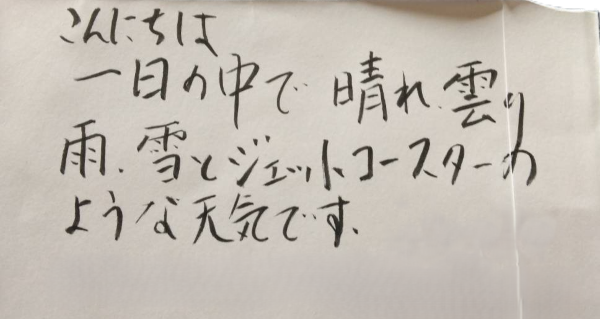 こんにちは
一日の中で晴れ、雲り
雨、雪とジェットコースターの
ような天気です。